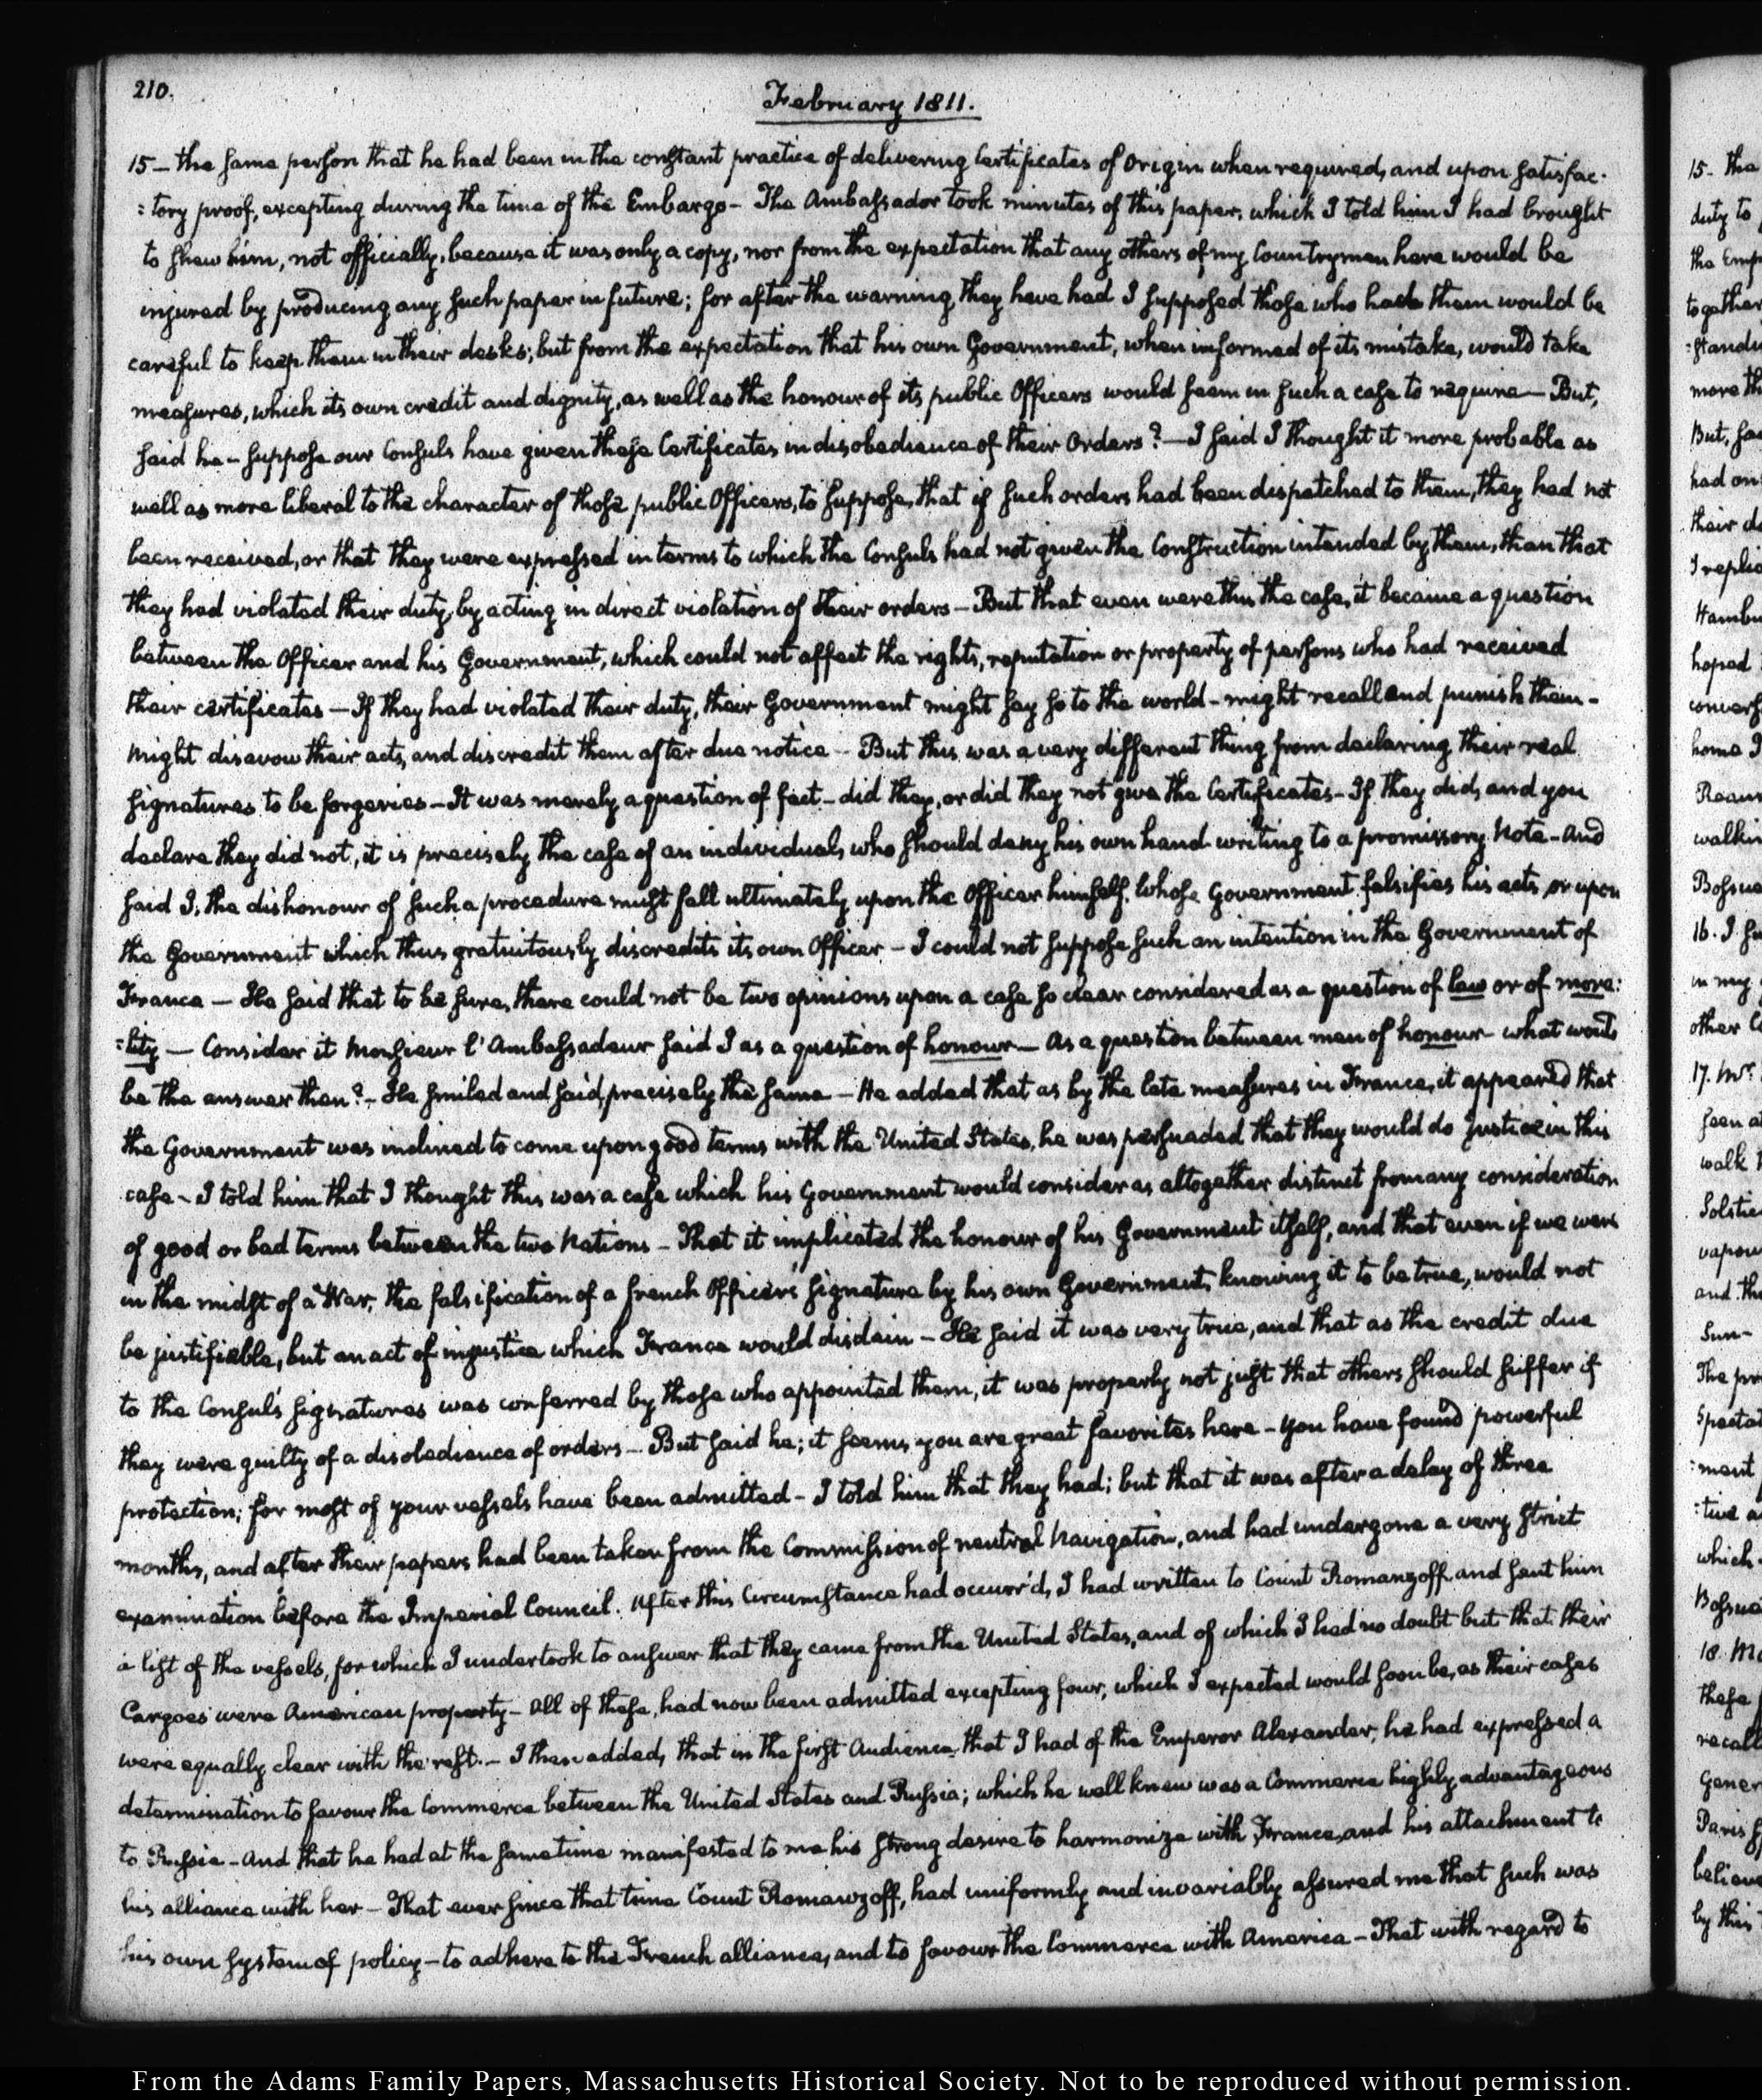 210.
February 1811.
15 — the same person that he had been in the constant practice of delivering Certificates of Origin when required, and upon satisfac-
:tory proof, excepting during the time of the Embargo — The Ambassador took minutes of this paper, which I told him I had brought
to shew him, not officially, because it was only a copy, nor from the expectation that any others of my Countrymen here would be
injured by producing any such paper in future; for after the warning they have had I supposed those who had them would be
careful to keep them in their desks; but from the expectation that his own Government, when informed of its mistake, would take
measures, which its own credit and dignity, as well as the honour of its public Officers would seem in such a case to require — But,
said he — suppose our Consuls have given these Certificates in disobedience of their Orders? — I said I thought it more probable as
well as more liberal to the character of those public Officers, to suppose, that if such orders had been despatched to them, they had not
been received, or that they were expressed in terms to which the Consuls had not given the Construction intended by them, than that
they had violated their duty, by acting in direct violation of their orders — But that even were this the case, it became a question
between the Officer and his Government, which could not affect the rights, reputation or property of persons who had received
their certificates — If they had violated their duty, their Government might say so to the world — might recall and punish them —
might disavow their acts, and discredit them after due notice — But this was a very different thing from declaring their real
signatures to be forgeries — It was merely a question of fact — did they, or did they not give the Certificates — If they did, and you
declare they did not, it is precisely the case of an individual, who should deny his own hand-writing to a promissory Note — And
said I, the dishonour of such a procedure must fall ultimately upon the Officer himself, whose Government falsifies his acts, or upon
the Government which thus gratuitously discredits its own Officer — I could not suppose such an intention in the Government of
France — He said that to be sure, there could not be two opinions upon a case so clear considered as a question of law or of mora:
:lity — Consider it Monsieur l'Ambassadeur said I as a question of honour — As a question between men of honour — what would
be the answer then? — He smiled and said, precisely the same — He added that as by the late measures in France, it appeared that
the Government was inclined to come upon good terms with the United States, he was persuaded that they would do Justice in this
case — I told him that I thought this was a case which his Government would consider as altogether distinct from any consideration
of good or bad terms between the two Nations — That it implicated the honour of his Government itself, and that even if we were
in the midst of a War, the falsification of a french Officer's signature by his own Government, knowing it to be true, would not
be justifiable, but an act of injustice which France would disdain — He said it was very true, and that as the credit due
to the Consul's signatures was conferred by those who appointed them, it was properly not just that others should suffer if
they were guilty of a disobedience of orders — But said he; it seems, you are great favorites here — you have found powerful
protection; for most of your vessels have been admitted — I told him that they had; but that it was after a delay of three
months, and after their papers had been taken from the Commission of neutral Navigation, and had undergone a very strict
examination before the Imperial Council. After this Circumstance had occurr'd, I had written to Count Romanzoff and sent him
a list of the vessels, for which I undertook to answer that they came from the United States, and of which I had no doubt but that their
Cargoes were American property — All of these, had now been admitted excepting four, which I expected would soon be, as their cases
were equally clear with the rest. — I then added, that in the first Audience that I had of the Emperor Alexander, he had expressed a
determination to favour the Commerce between the United States and Russia; which he well knew was a Commerce highly advantageous
to Russia — And that he had at the same time manifested to me his strong desire to harmonize with France, and his attachment to
his alliance with her — That ever since that time Count Romanzoff, had uniformly and invariably assured me that such was
his own system of policy — to adhere to the French alliance, and to favour the Commerce with America — That with regard to
From the Adams Family Papers, Massachusetts Historical Society. Not to be reproduced without permission.